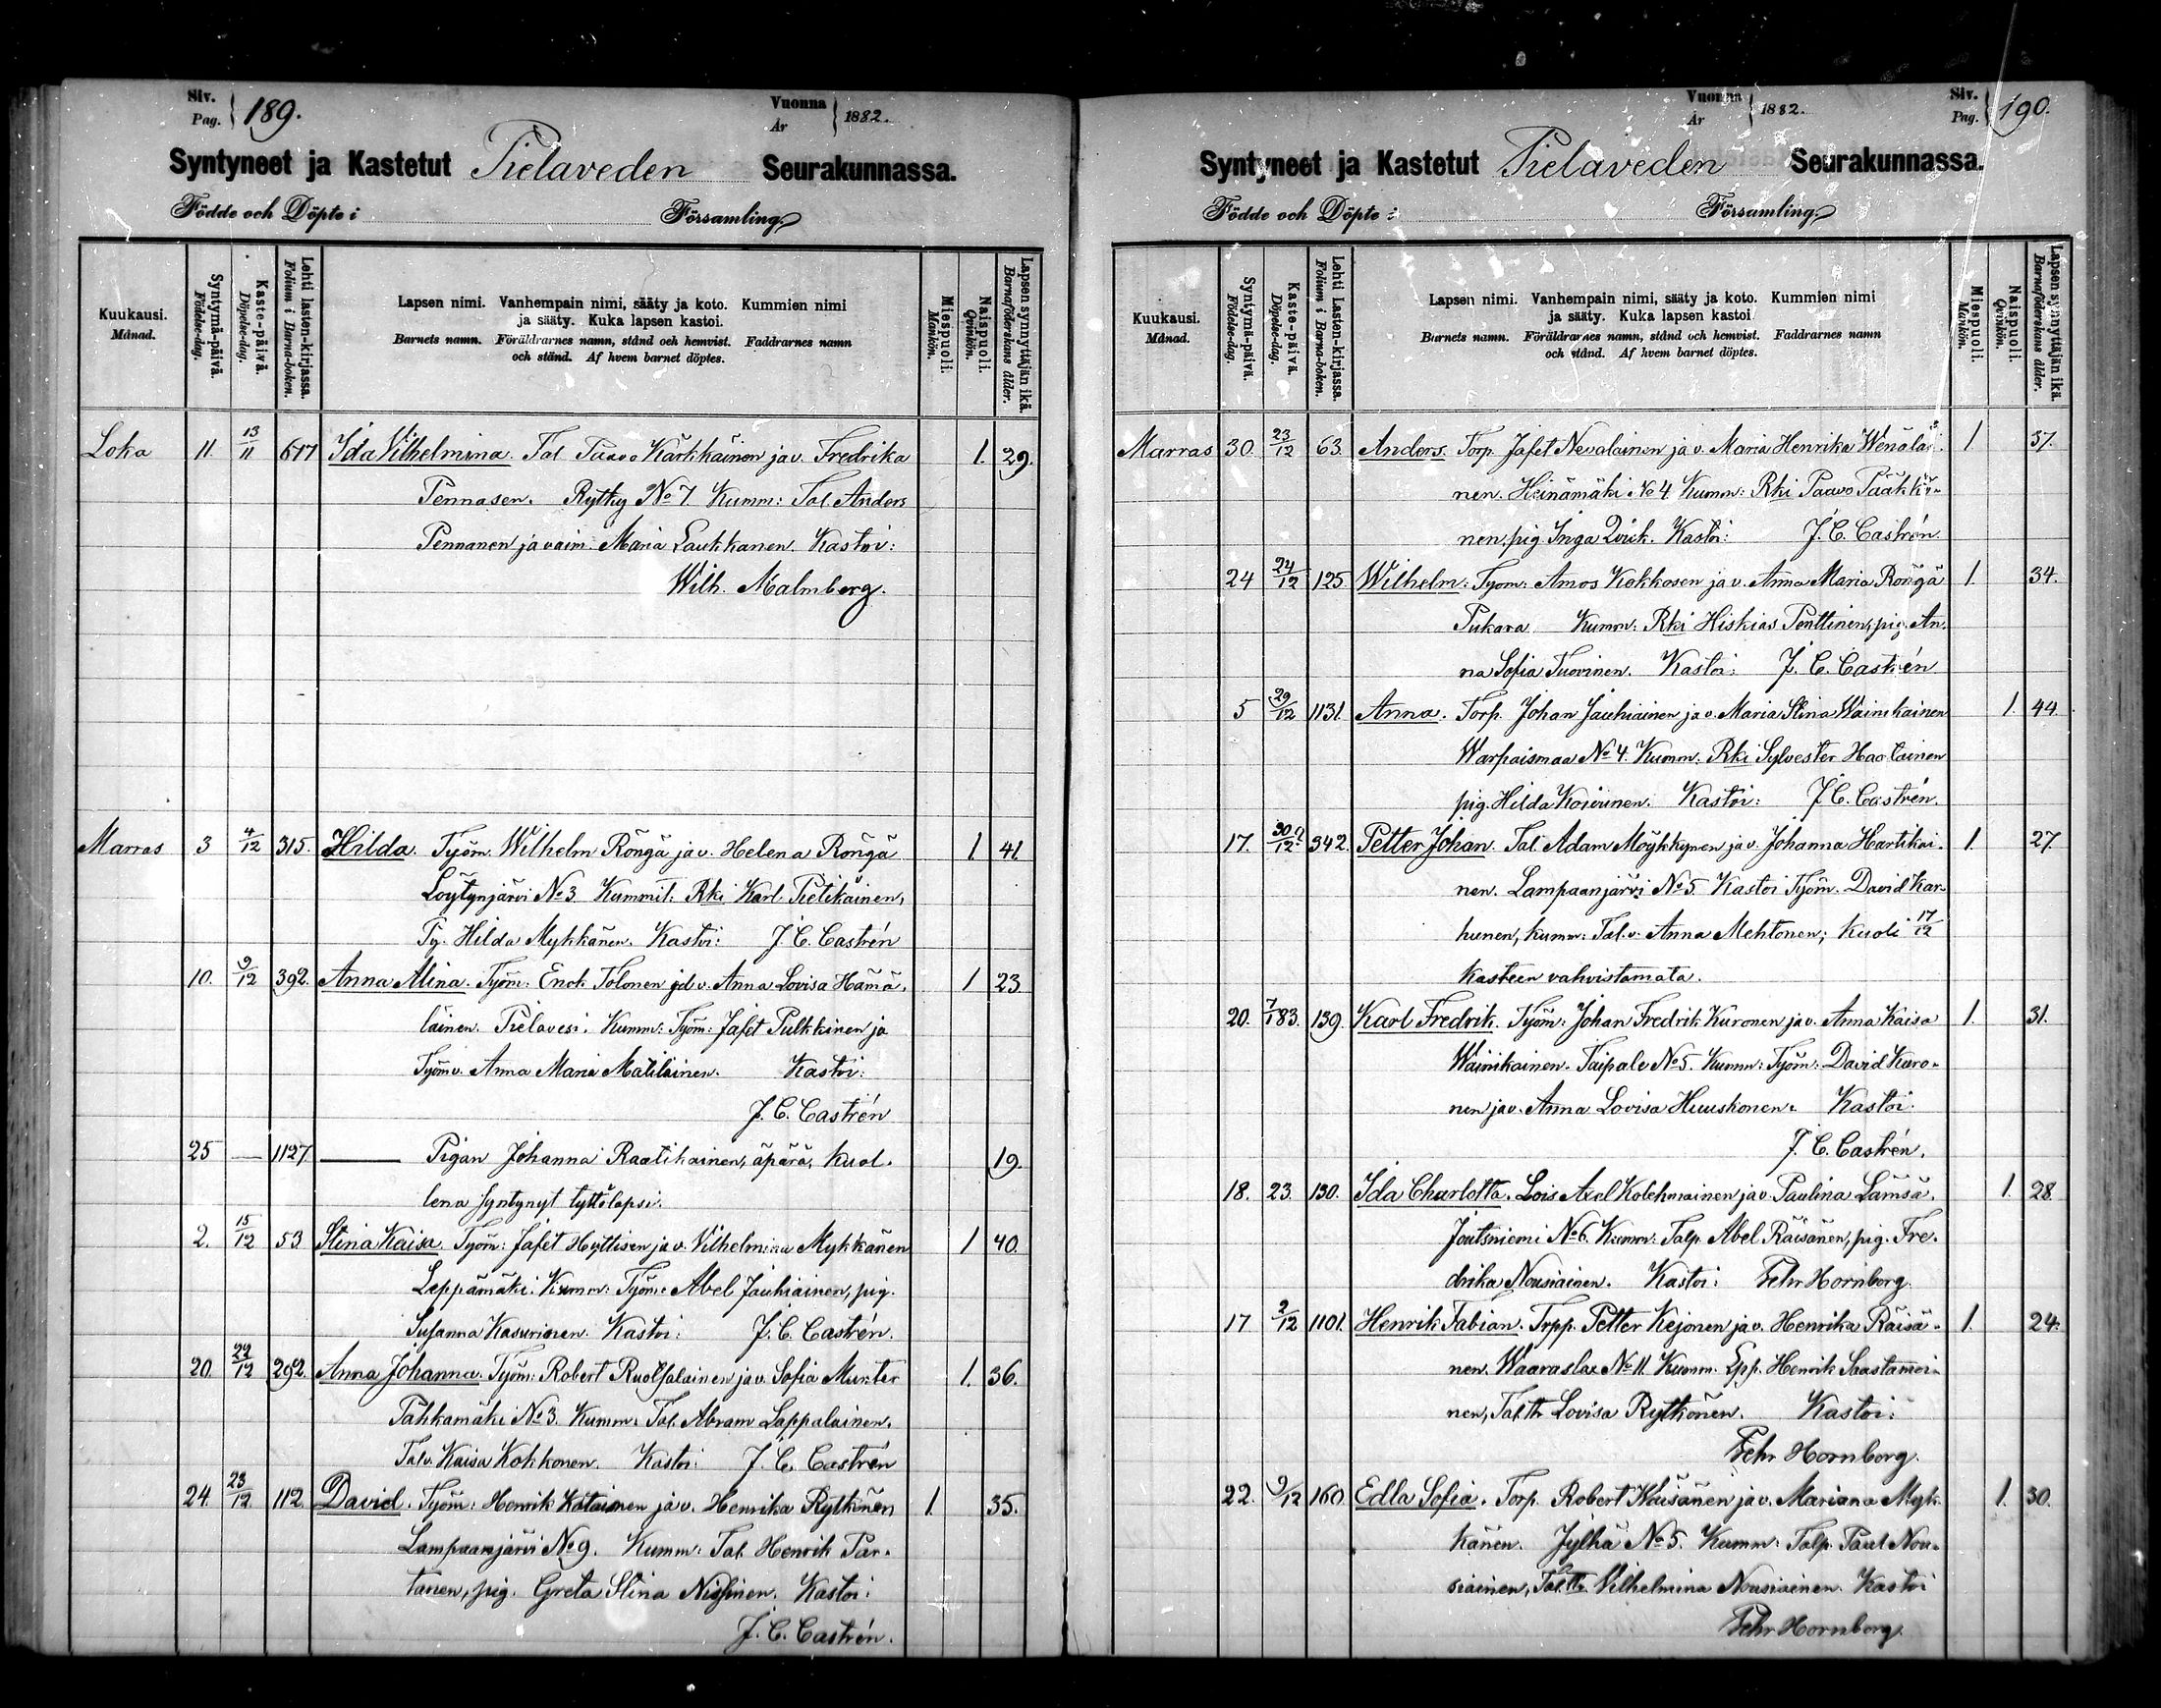 Siv. Pag. 189. Vuonna År 1882.
Syntyneet ja Kastetut Pielaveden Seurakunnassa.
Födde och Döpte i Församling.
Kuukausi. Månad.
Syntymä-päivä. Födelse-dag.
Kaste-päivä. Döpelse-dag.
Lehti lasten-kirjassa. Folium i Barna-boken.
Lapsen nimi. Vanhempain nimi, sääty ja koto. Kummien nimi
ja sääty. Kuka lapsen kastoi.
Barnets namn. Föräldrarnes namn, stånd och hemvist. Faddrarnes namn
och stånd. Af hvem barnet döptes.
Miespuoli. Mankön.
Naispuoli. Qvinkön.
Lapsen synnyttäjän ikä. Barnaföderskans ålder.
Loka 11. 13/11 617 Ida Vilhelmina. Tal. Paavo Kärkkäinen ja v. Fredrika 1. 29.
Pennasen. Rytky No 7. Kumm: Tal. Anders
Pennanen ja vaim. Maria Laukkanen. Kastoi:
Wilh. Malmberg.
Marras 3 4/12 315. Hilda. Työm. Wilhelm Röngä ja v. Helena Röngä 1 41.
Löytynjärvi No 3. Kummit: Rki Karl Pietikäinen,
Pg. Hilda Mykkänen. Kastoi: J. C. Castrén
10. 9/12 392. Anna Alina. Työm: Enok Tolonen ja v. Anna Lovisa Hämä- 1 23
läinen. Pielavesi. Kumm: Työm: Jafet Pulkkinen ja
Työm v. Anna Maria Matilainen. Kastoi:
J. C. Castrén
25 — 1127 — Pigan Johanna Raatikainen, äpärä, Kuol- 19.
lena syntynyt tyttölapsi.
2. 15/12 53 Stina Kaisa. Työm: Jafet Hyttisen ja v. Vilhelmina Mykkänen 1 40.
Leppämäki. Kumm: Työm: Abel Jauhiainen, pig.
Susanna Kasurinen. Kastoi: J. C. Castrén.
20. 22/12 292. Anna Johanna. Työm: Robert Ruotsalainen ja v. Sofia Munter 1. 36.
Tahkamäki No 3. Kumm: Tal. Abram Lappalainen,
Tal v. Kaisa Kokkonen. Kastoi: J. C. Castrén
24. 23/12. 112. David. Työm: Henrik Kataimen ja v. Henrika Rytkönen 1. 35.
Lampaanjärvi No 9. Kumm: Tal. Henrik Par-
tanen, pig. Greta Stina Nissinen. Kastoi:
J. C. Castrén.
Vuonna År 1882. Siv. Pag. 190.
Syntyneet ja Kastetut Pielaveden Seurakunnassa.
Födde och Döpte i Församling.
Kuukausi. Månad.
Syntymä-päivä. Födelse-dag.
Kaste-päivä. Döpelse-dag.
Lehti Lasten-kirjassa. Folium i Barna-boken.
Lapsen nimi. Vanhempain nimi, sääty ja koto. Kummien nimi
ja sääty. Kuka lapsen kastoi
Barnets namn. Föräldrarnes namn, stånd och hemvist. Faddrarnes namn
och stånd. Af hvem barnet döptes.
Miespuoli. Mankön.
Naispuoli. Qvinkön.
Lapsen synnyttäjän ikä. Barnaföderskans ålder.
Marras 30. 23/12 63. Anders. Torp. Jafet Nevalainen ja v. Maria Henrika Wenäläi- 1. 37.
nen. Heinämäki No 4. Kumm: Rki Paavo Pääkkö-
nen, pig. Inga Qvick. Kastoi: J. C. Castrén.
24 24/12 125. Wilhelm. Työm: Amos Kokkosen ja v. Anna Maria Röngä 1. 34.
Pukara Kumm: Rki Hiskias Penttinen, pig. An-
na Sofia Tuovinen. Kastoi: J. C. Castrén
5 29/12 1131. Anna. Torp. Johan Jauhiainen ja v. Maria Stina Wainikainen 1. 44.
Warpaismaa No 4. Kumm. Rki Sylvester Haatainen
pig. Hilda Koivunen. Kastoi: J. C. Castrén.
17. 30/12 342. Petter Johan. Tal. Adam Möykkynen ja v. Johanna Hartikai- 1. 27.
nen. Lampaanjärvi No 5. Kastoi Työm. David Kar-
hunen, kumm: Tal. v. Anna Mehtonen; Kuoli 17/12
kasteen vahvistamata.
20. 7/1 83. 139. Karl Fredrik. Työm: Johan Fredrik Kuronen ja v. Anna Kaisa 1. 31.
Wäinikainen. Taipale No 5. Kumm: Työm: David Kuro-
nen ja v. Anna Lovisa Huuskonen. Kastoi:
J. C. Castrén.
18. 23. 130. Ida Charlotta. Lois Axel Kolehmainen ja v. Paulina Lämsä. 1. 28.
Joutsniemi No 6. Kumm: Talp. Abel Räisänen, pig. Fre-
drika Nousiainen. Kastoi: Fehr Hornborg.
17 2/12 1101. Henrik Fabian. Trpp. Petter Kejonen ja v. Henrika Räisä- 1. 24.
nen. Waaraslax No 11. Kumm: Lpp. Henrik Saastamoi-
nen, Tal. tr Lovisa Rytkönen. Kastoi:
Fehr Hornborg.
22. 9/12 160. Edla Sofia. Torp. Robert Wäisänen ja v. Mariana Myk- 1. 30.
känen. Jylhä No 5. Kumm: Talp. Paul Nou-
siainen, Tal. tr Vilhelmina Nousiainen. Kastoi
Fehr Hornborg.